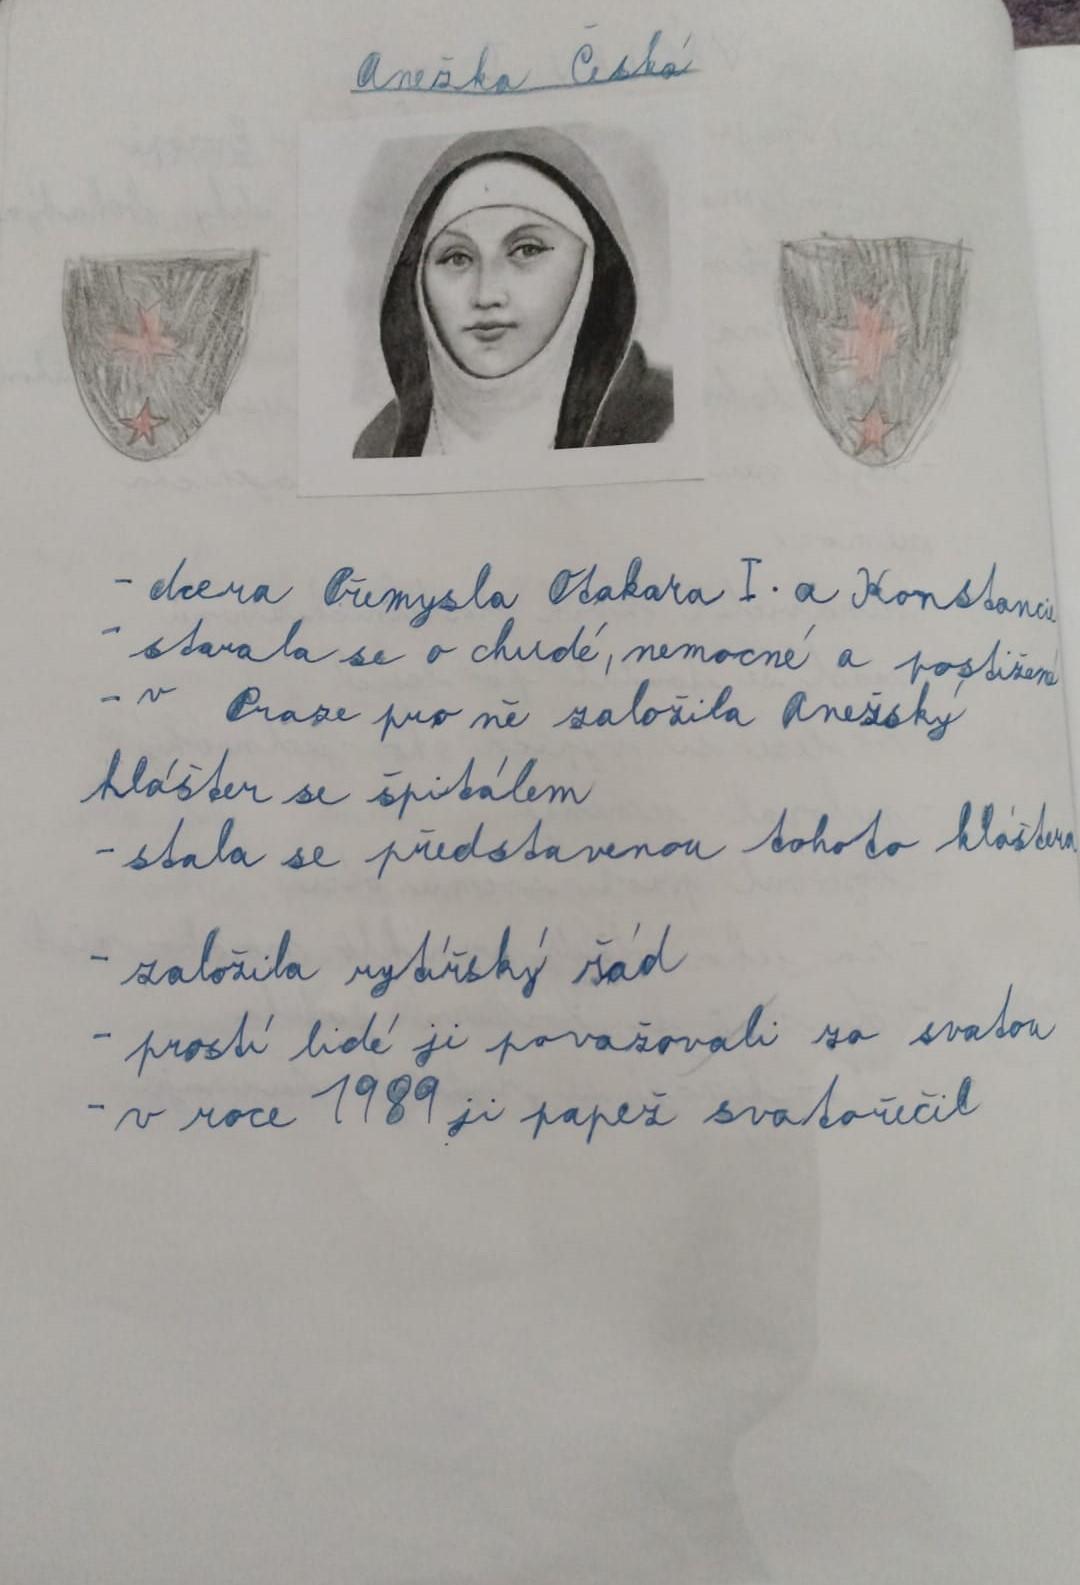 Anežka Česká
- dcera Přemysla Otakara I. a Konstancie
- starala se o chudé, nemocné a postižené
- v Praze pro ně založila Anežský
klášter se špitálem
- stala se představenou tohoto kláštera
- založila rytířský řád
- prostí lidé ji považovali za svatou
- v roce 1989 ji papež svatořečil